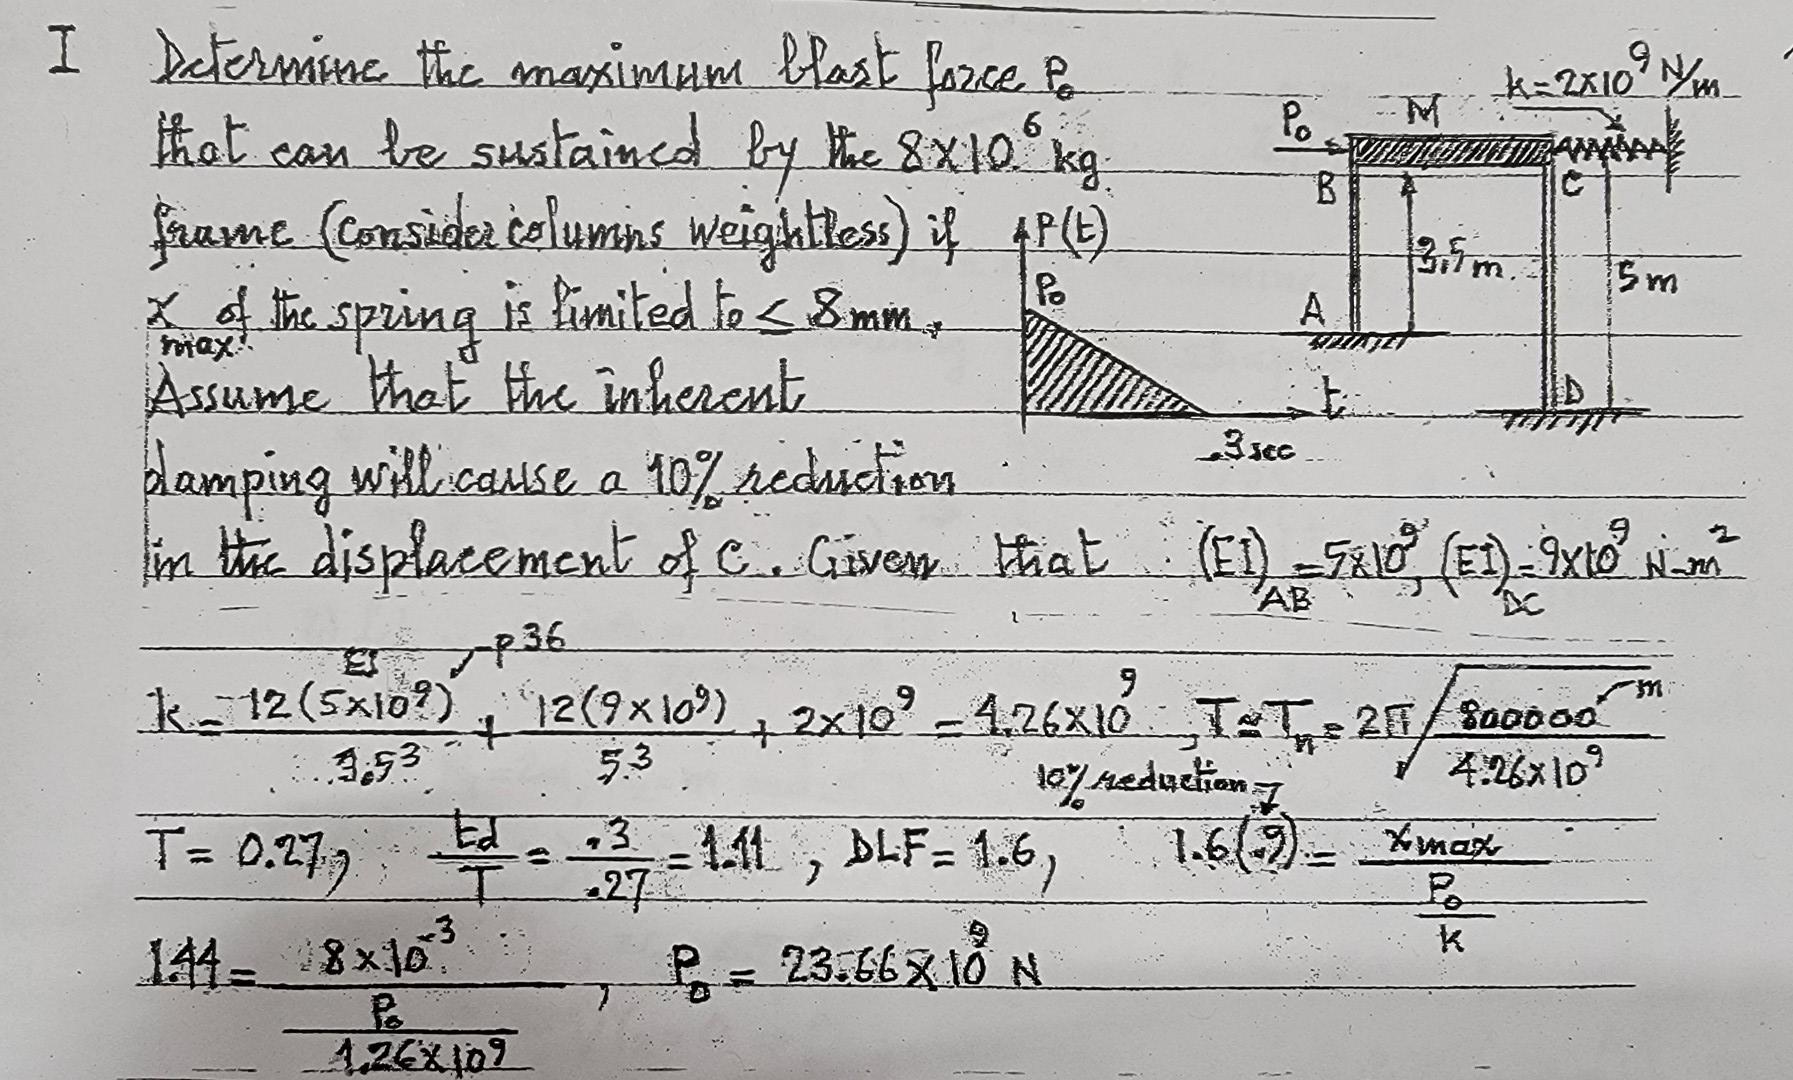 I Determine the maximum blast force P₀
that can be sustained by the 8×10⁶ kg
frame (consider columns weightless) if
x max. of the spring is limited to ≤ 8 mm.
Assume that the inherent
damping will cause a 10% reduction
in the displacement of C. Given that (EI)AB = 5×10⁹, (EI)DC = 9×10⁹ N-m²
k = 2×10⁹ N/m
P₀ M
B C
3.5 m. 5 m
A
D
P(t)
P₀
t
.3 sec
EI p 36
k = 12(5×10⁹)/3.5³ + 12(9×10⁹)/5³ + 2×10⁹ = 4.26×10⁹, T ≃ Tn = 2π √(800000/4.26×10⁹) m
10% reduction
T = 0.27, td/T = .3/.27 = 1.11, DLF = 1.6, 1.6(.9) = xmax/(P₀/k)
1.44 = 8×10⁻³/(P₀/4.26×10⁹), P₀ = 23.66×10⁹ N